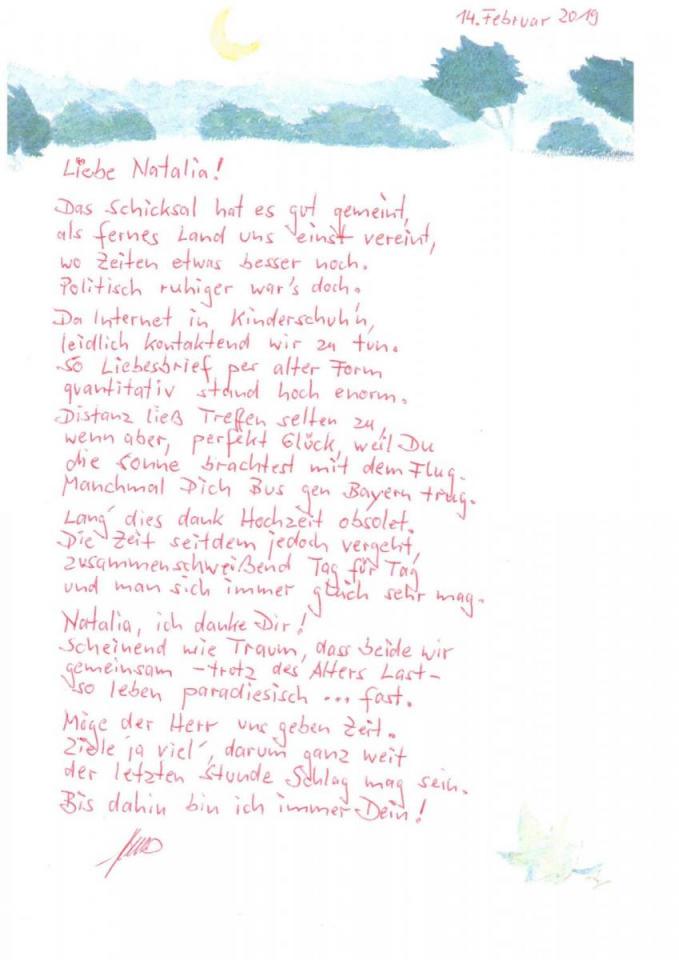 14. Februar 2019
Liebe Natalia!
Das Schicksal hat es gut gemeint,
als fernes Land uns einst vereint,
wo Zeiten etwas besser noch.
Politisch ruhiger war's doch.
Da Internet in Kinderschuh'n,
leidlich kontaktend wir zu tun.
So Liebesbrief per alter Form
quantitativ stand hoch enorm.
Distanz ließ Treffen selten zu,
wenn aber, perfekt Glück, weil Du
die Sonne brachtest mit dem Flug.
Manchmal Dich Bus gen Bayern trug.
Lang' dies dank Hochzeit obsolet.
Die Zeit seitdem jedoch vergeht,
zusammenschweißend Tag für Tag
und man sich immer gleich sehr mag.
Natalia, ich danke Dir!
Scheinend wie Traum, dass beide wir
gemeinsam - trotz des Alters Last-
so leben paradiesisch ... fast.
Möge der Herr uns geben Zeit.
Ziele ja viel', darum ganz weit
der letzten Stunde Schlag mag sein.
Bis dahin bin ich immer Dein!